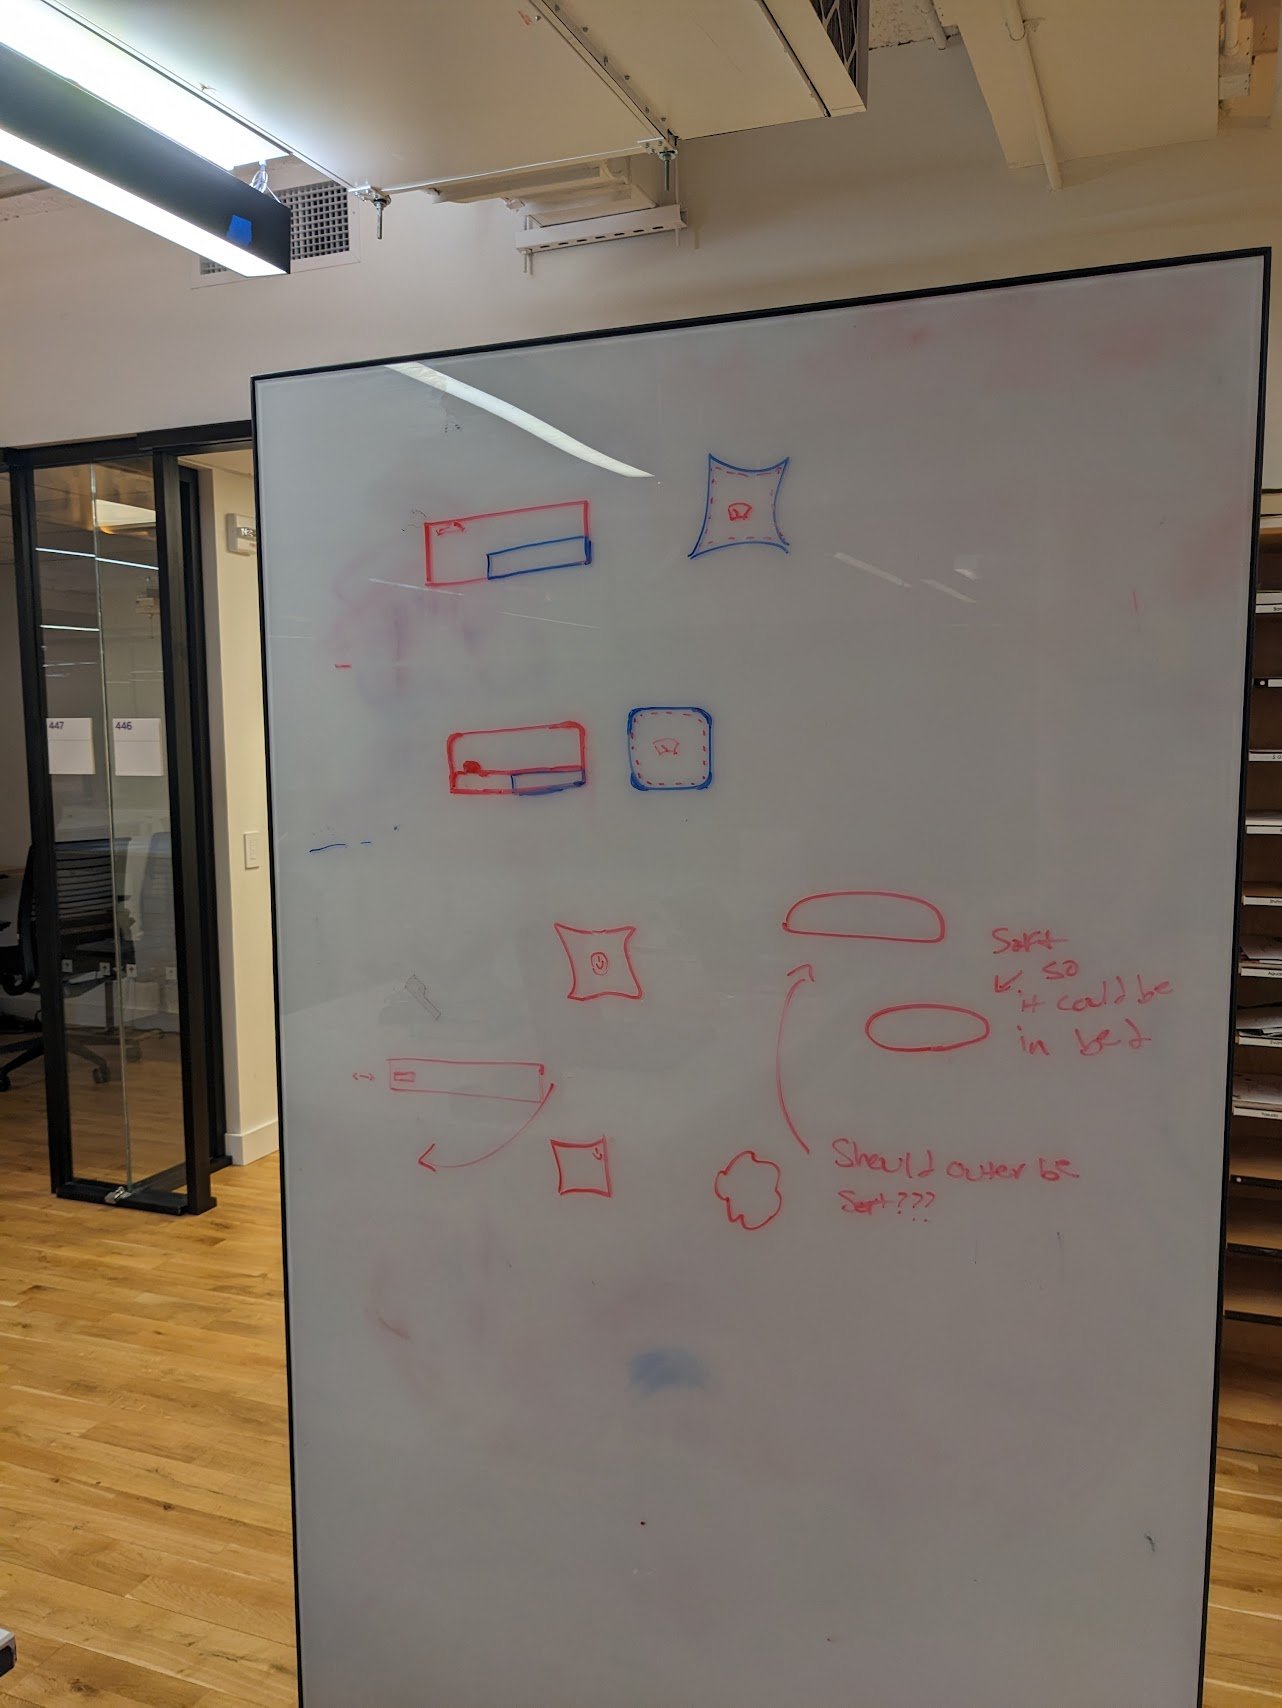 447
446
Soft
so
it could be
in bed
Should outer be
Soft???